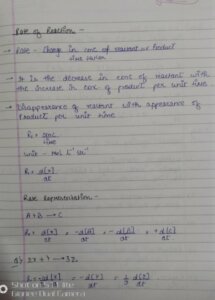 Rate of Reaction -
→ Rate - Change in conc of reactant or Product
time taken
→ It is the decrease in conc of reactant with
the increase in conc of product per unit time
→ Disappearance of reactant with appearance of
Product per unit time
time
unit - mol L⁻¹ sec⁻¹
R = d[x]
dt
Rate Representation -
A + B → C
R = -d[A] = -d[B] = +d[C]
dt dt dt
2X + Y → 3Z
R = -d[X] = -d[Y] = 1 d[Z]
dt dt 3 dt
Shot on
Camera